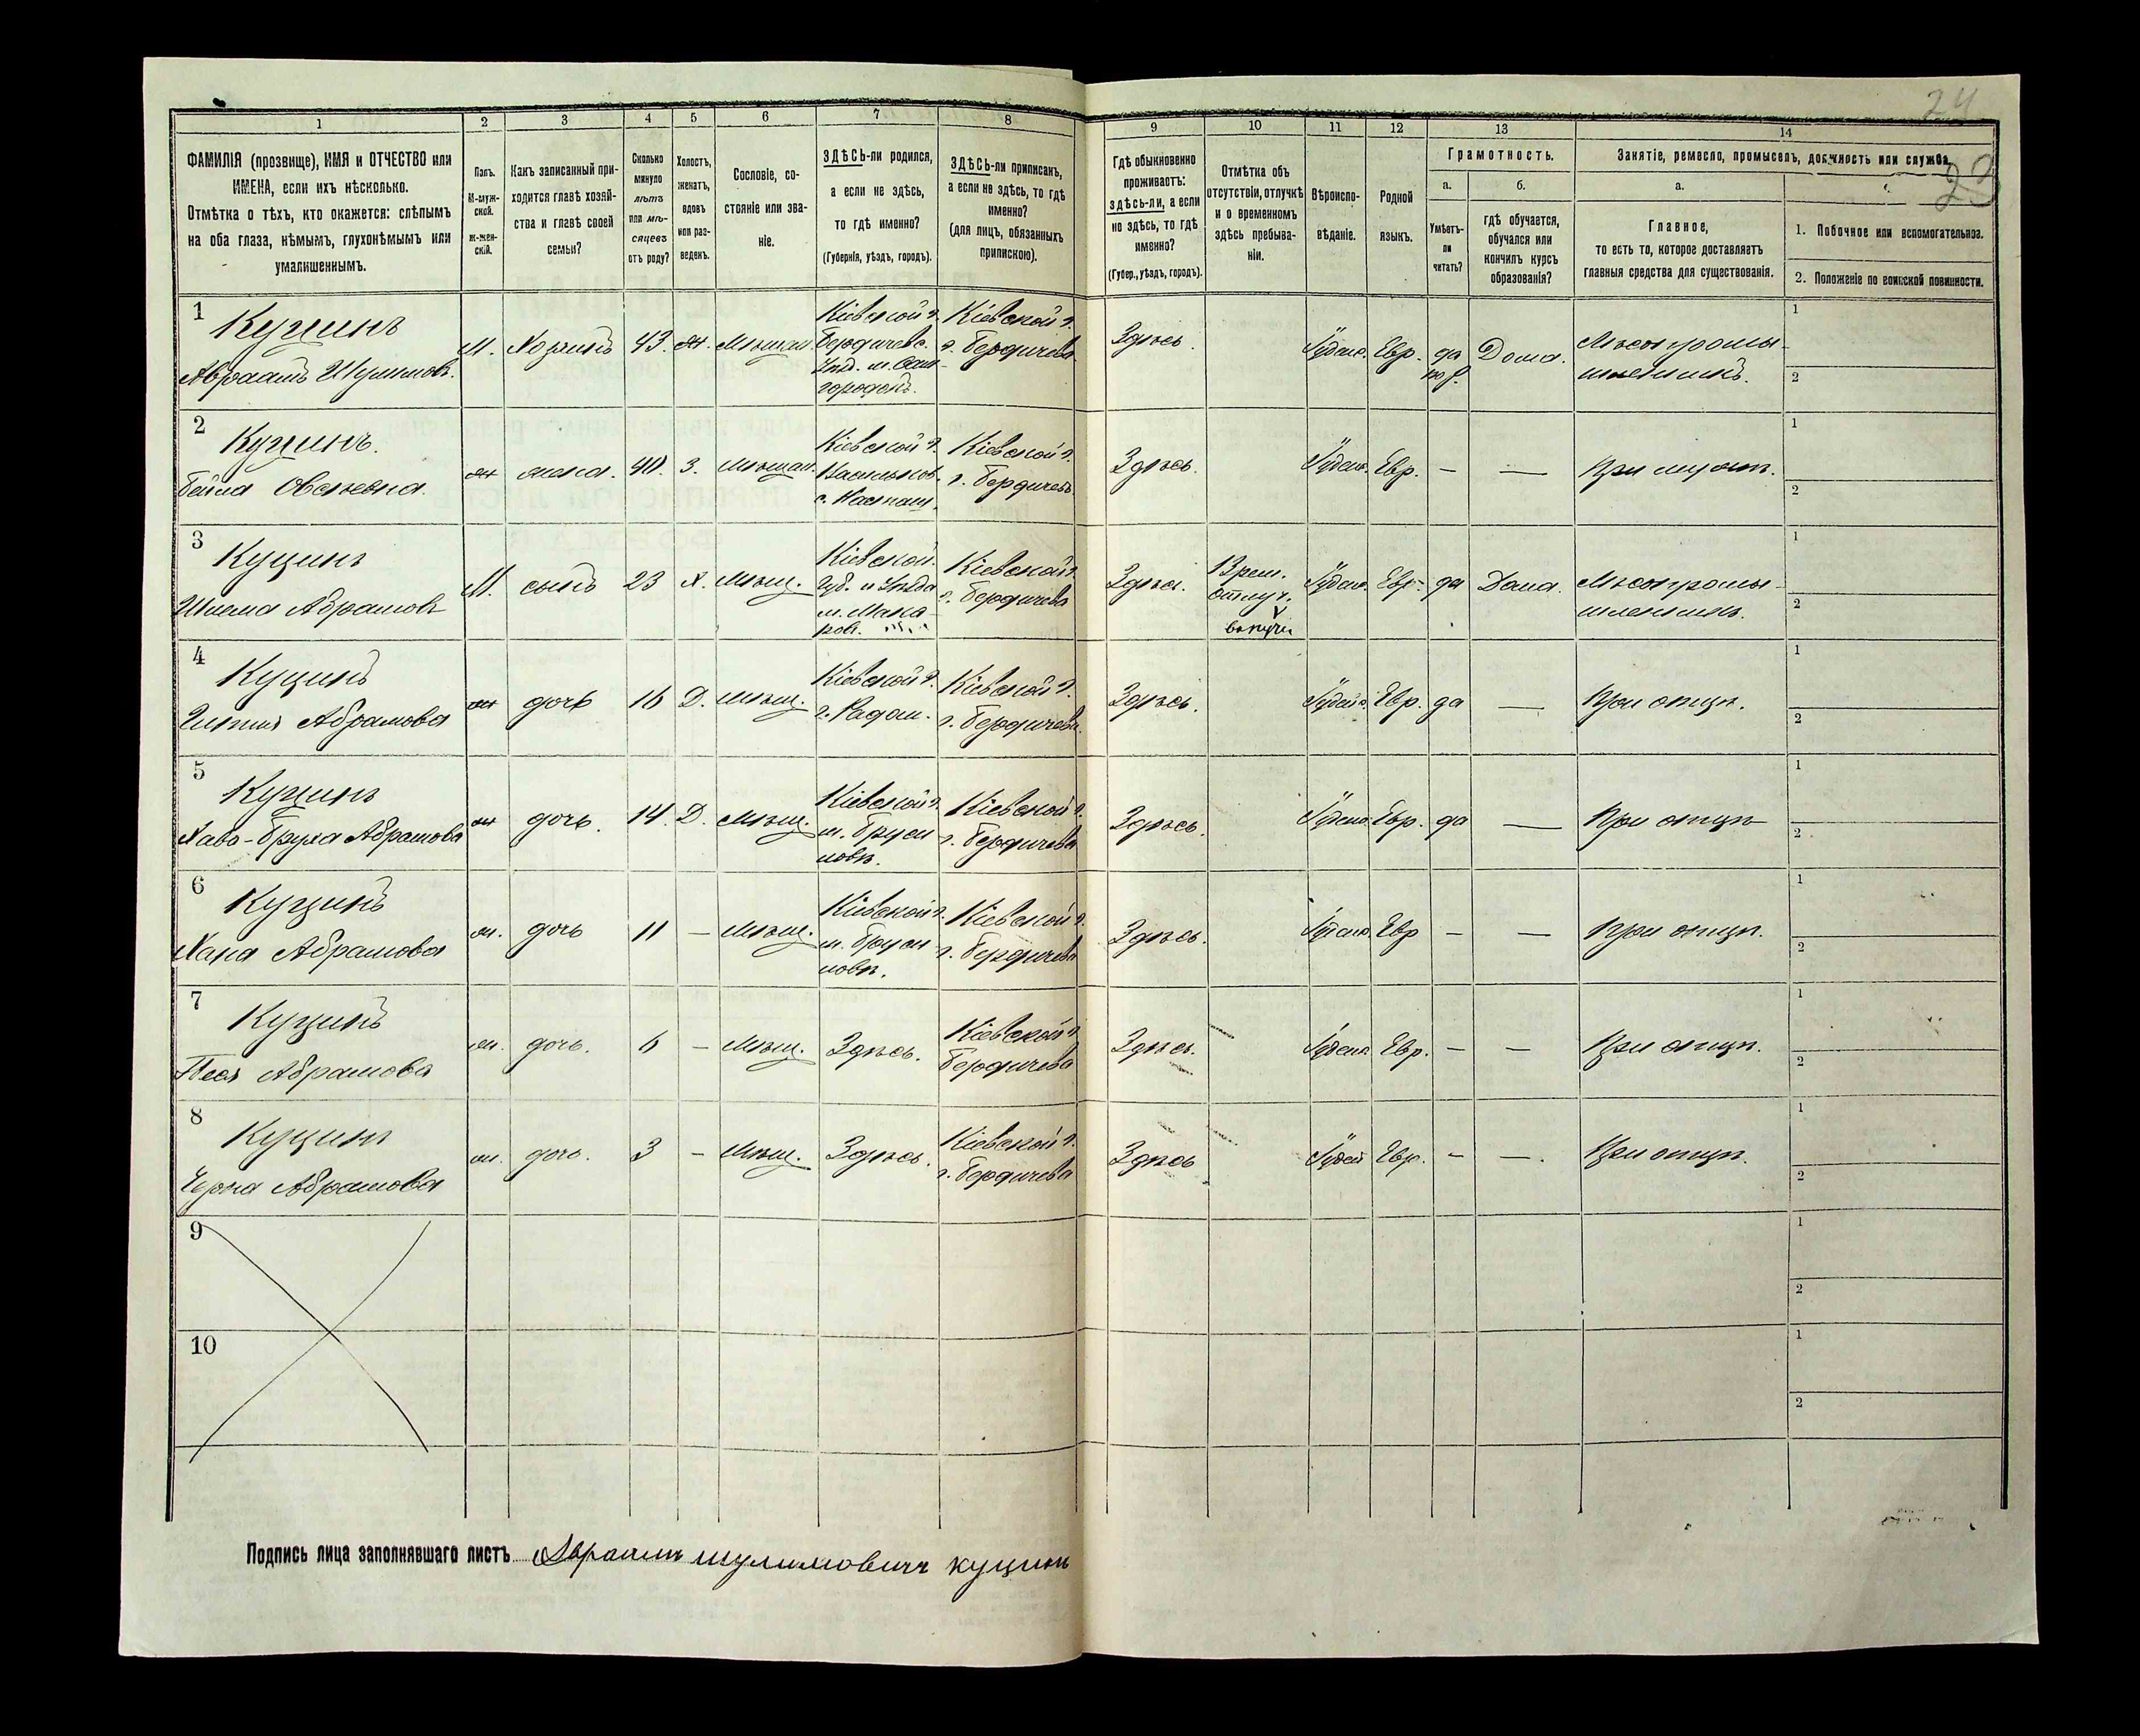 24
23
1
2
3
4
5
6
7
8
9
10
11
12
13
14
ФАМИЛІЯ (прозвище), ИМЯ и ОТЧЕСТВО или
ИМЕНА, если ихъ нѣсколько.
Отмѣтка о тѣхъ, кто окажется: слѣпымъ
на оба глаза, нѣмымъ, глухонѣмымъ или
умалишеннымъ.
Полъ.
М-муж-
ской.
Ж-жен-
скій.
Какъ записанный при-
ходится главѣ хозяй-
ства и главѣ своей
семьи?
Сколько
минуло
лѣтъ
или мѣ-
сяцевъ
отъ роду?
Холостъ,
женатъ,
вдовъ
или раз-
веденъ.
Сословіе, со-
стояніе или зва-
ніе.
ЗДѢСЬ-ли родился,
а если не здѣсь,
то гдѣ именно?
(Губернія, уѣздъ, городъ).
ЗДѢСЬ-ли приписанъ,
а если не здѣсь, то гдѣ
именно?
(для лицъ, обязанныхъ
припискою).
Гдѣ обыкновенно
проживаетъ:
здѣсь-ли, а если
не здѣсь, то гдѣ
именно?
(Губер., уѣздъ, городъ).
Отмѣтка объ
отсутствіи, отлучкѣ
и о временномъ
здѣсь пребыва-
ніи.
Вѣроиспо-
вѣданіе.
Родной
языкъ.
Грамотность.
а.
Умѣетъ-
ли
читать?
б.
гдѣ обучается,
обучался или
кончилъ курсъ
образованія?
Занятіе, ремесло, промыселъ, должность или служба.
а.
Главное,
то есть то, которое доставляетъ
главныя средства для существованія.
1. Побочное или вспомогательное.
2. Положеніе по воинской повинности.
1
Куцинъ
Авраамъ Шулимовъ.
М. Хозяинъ 43. ж. Мѣщан.
Кіевской г.
Бердичевс.
Уѣзд. м. Сам-
городокъ.
Кіевской г.
г. Бердичева
Здѣсь. Іудейс. Евр. да Дома.
по р.
Мѣстпромы-
шленникъ.
1
2
2
Куцинъ.
Бейла Овсѣевна.
ж жена. 40. З. мѣщан.
Кіевской г.
Васильков.
Кіевской г.
г. Бердичевъ
Здѣсь. Іудейс. Евр. — — При мужѣ.
1
2
3
Куцинъ
Шлема Абрамовъ
М. сынъ 23 Х. Мѣщ.
Кіевской.
Губ. и Уѣзда
м. Мака-
ров.
Кіевской г.
г. Бердичева
Здѣсь. Врем. отлуч. Іудейс. Евр. да Дома.
Мѣстпромы-
шленникъ.
1
2
4
Куцинъ
Абрамова
ж дочь 16 Д. Мѣщ.
Кіевской г.
г. Радом.
Кіевской г.
г. Бердичева.
Здѣсь. Іудейс. Евр. да — При отцѣ.
1
2
5
Куцинъ
Хава-Бруха Абрамова
ж дочь. 14. Д. Мѣщ.
Кіевской г.
м. Бруси
ловѣ.
Кіевской г.
г. Бердичева
Здѣсь. Іудейс. Евр. да — При отцѣ
1
2
6
Куцинъ
Хана Абрамова
ж. дочь 11 — Мѣщ.
Кіевской г.
м. Бруси
ловѣ.
Кіевской г.
г. Бердичева
Здѣсь. Іудейс. Евр — — При отцѣ.
1
2
7
Куцинъ
Песя Абрамова
ж. дочь. 6 — Мѣщ. Здѣсь.
Кіевской г.
Бердичева
Здѣсь. Іудейс. Евр. — — При отцѣ.
1
2
8
Куцинъ
Чарна Абрамова
ж. дочь. 3 — Мѣщ. Здѣсь.
Кіевской г.
г. Бердичева
Здѣсь Іудей Евр. — —. При отцѣ.
1
2
9
1
2
10
1
2
Подпись лица заполнявшаго листъ Авраамъ шулимовичъ куцинъ